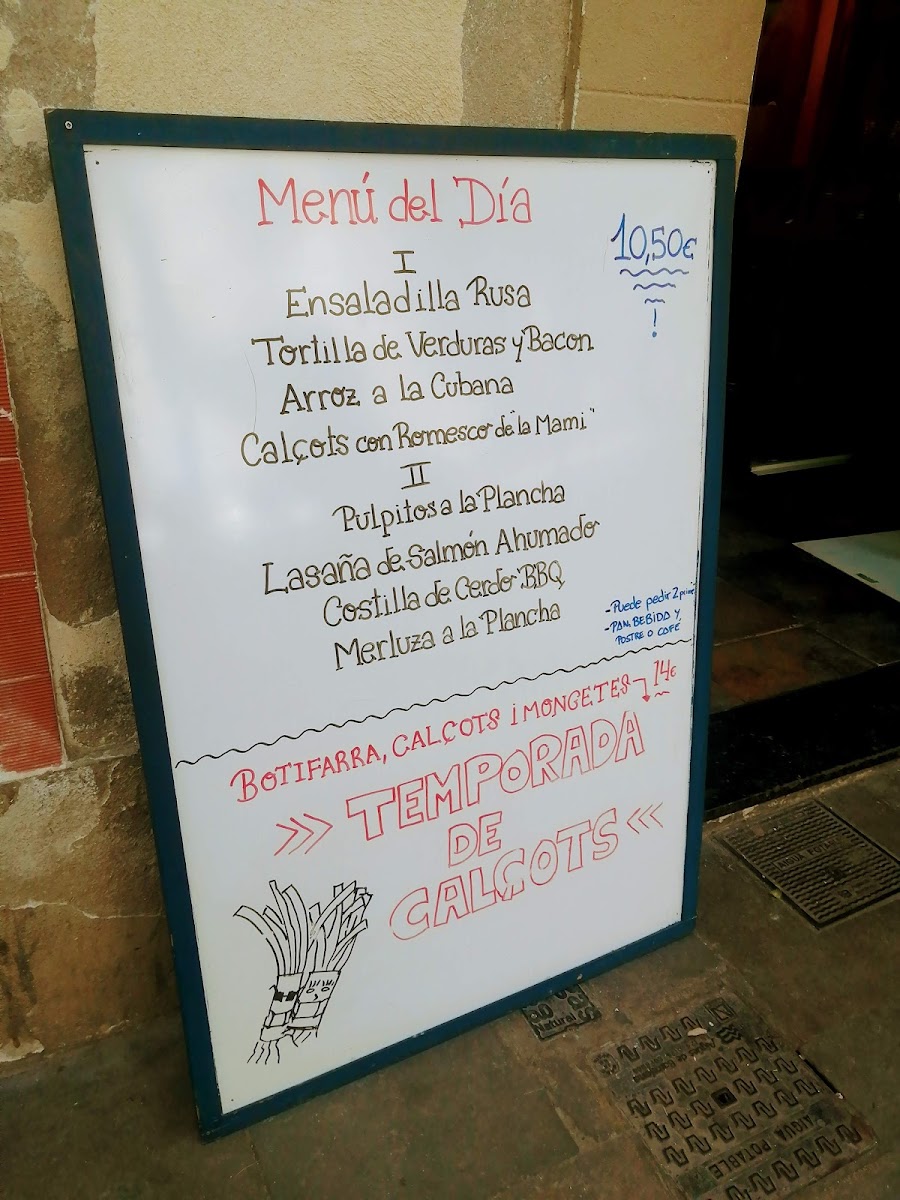 Menú del Día
10,50€
!
I
Ensaladilla Rusa
Tortilla de Verduras y Bacon
Arroz a la Cubana
Calçots con Romesco de "la Mami"
II
Pulpitos a la Plancha
Lasaña de Salmón Ahumado
Costilla de Cerdo BBQ
Merluza a la Plancha
-Puede pedir 2
-PAN, BEBIDA Y
POSTRE O CAFÉ
BOTIFARRA, CALÇOTS i MONGETES 14€
>> TEMPORADA
DE
CALÇOTS <<
Natural
AIGUA POTABLE
AIGUA POTABLE